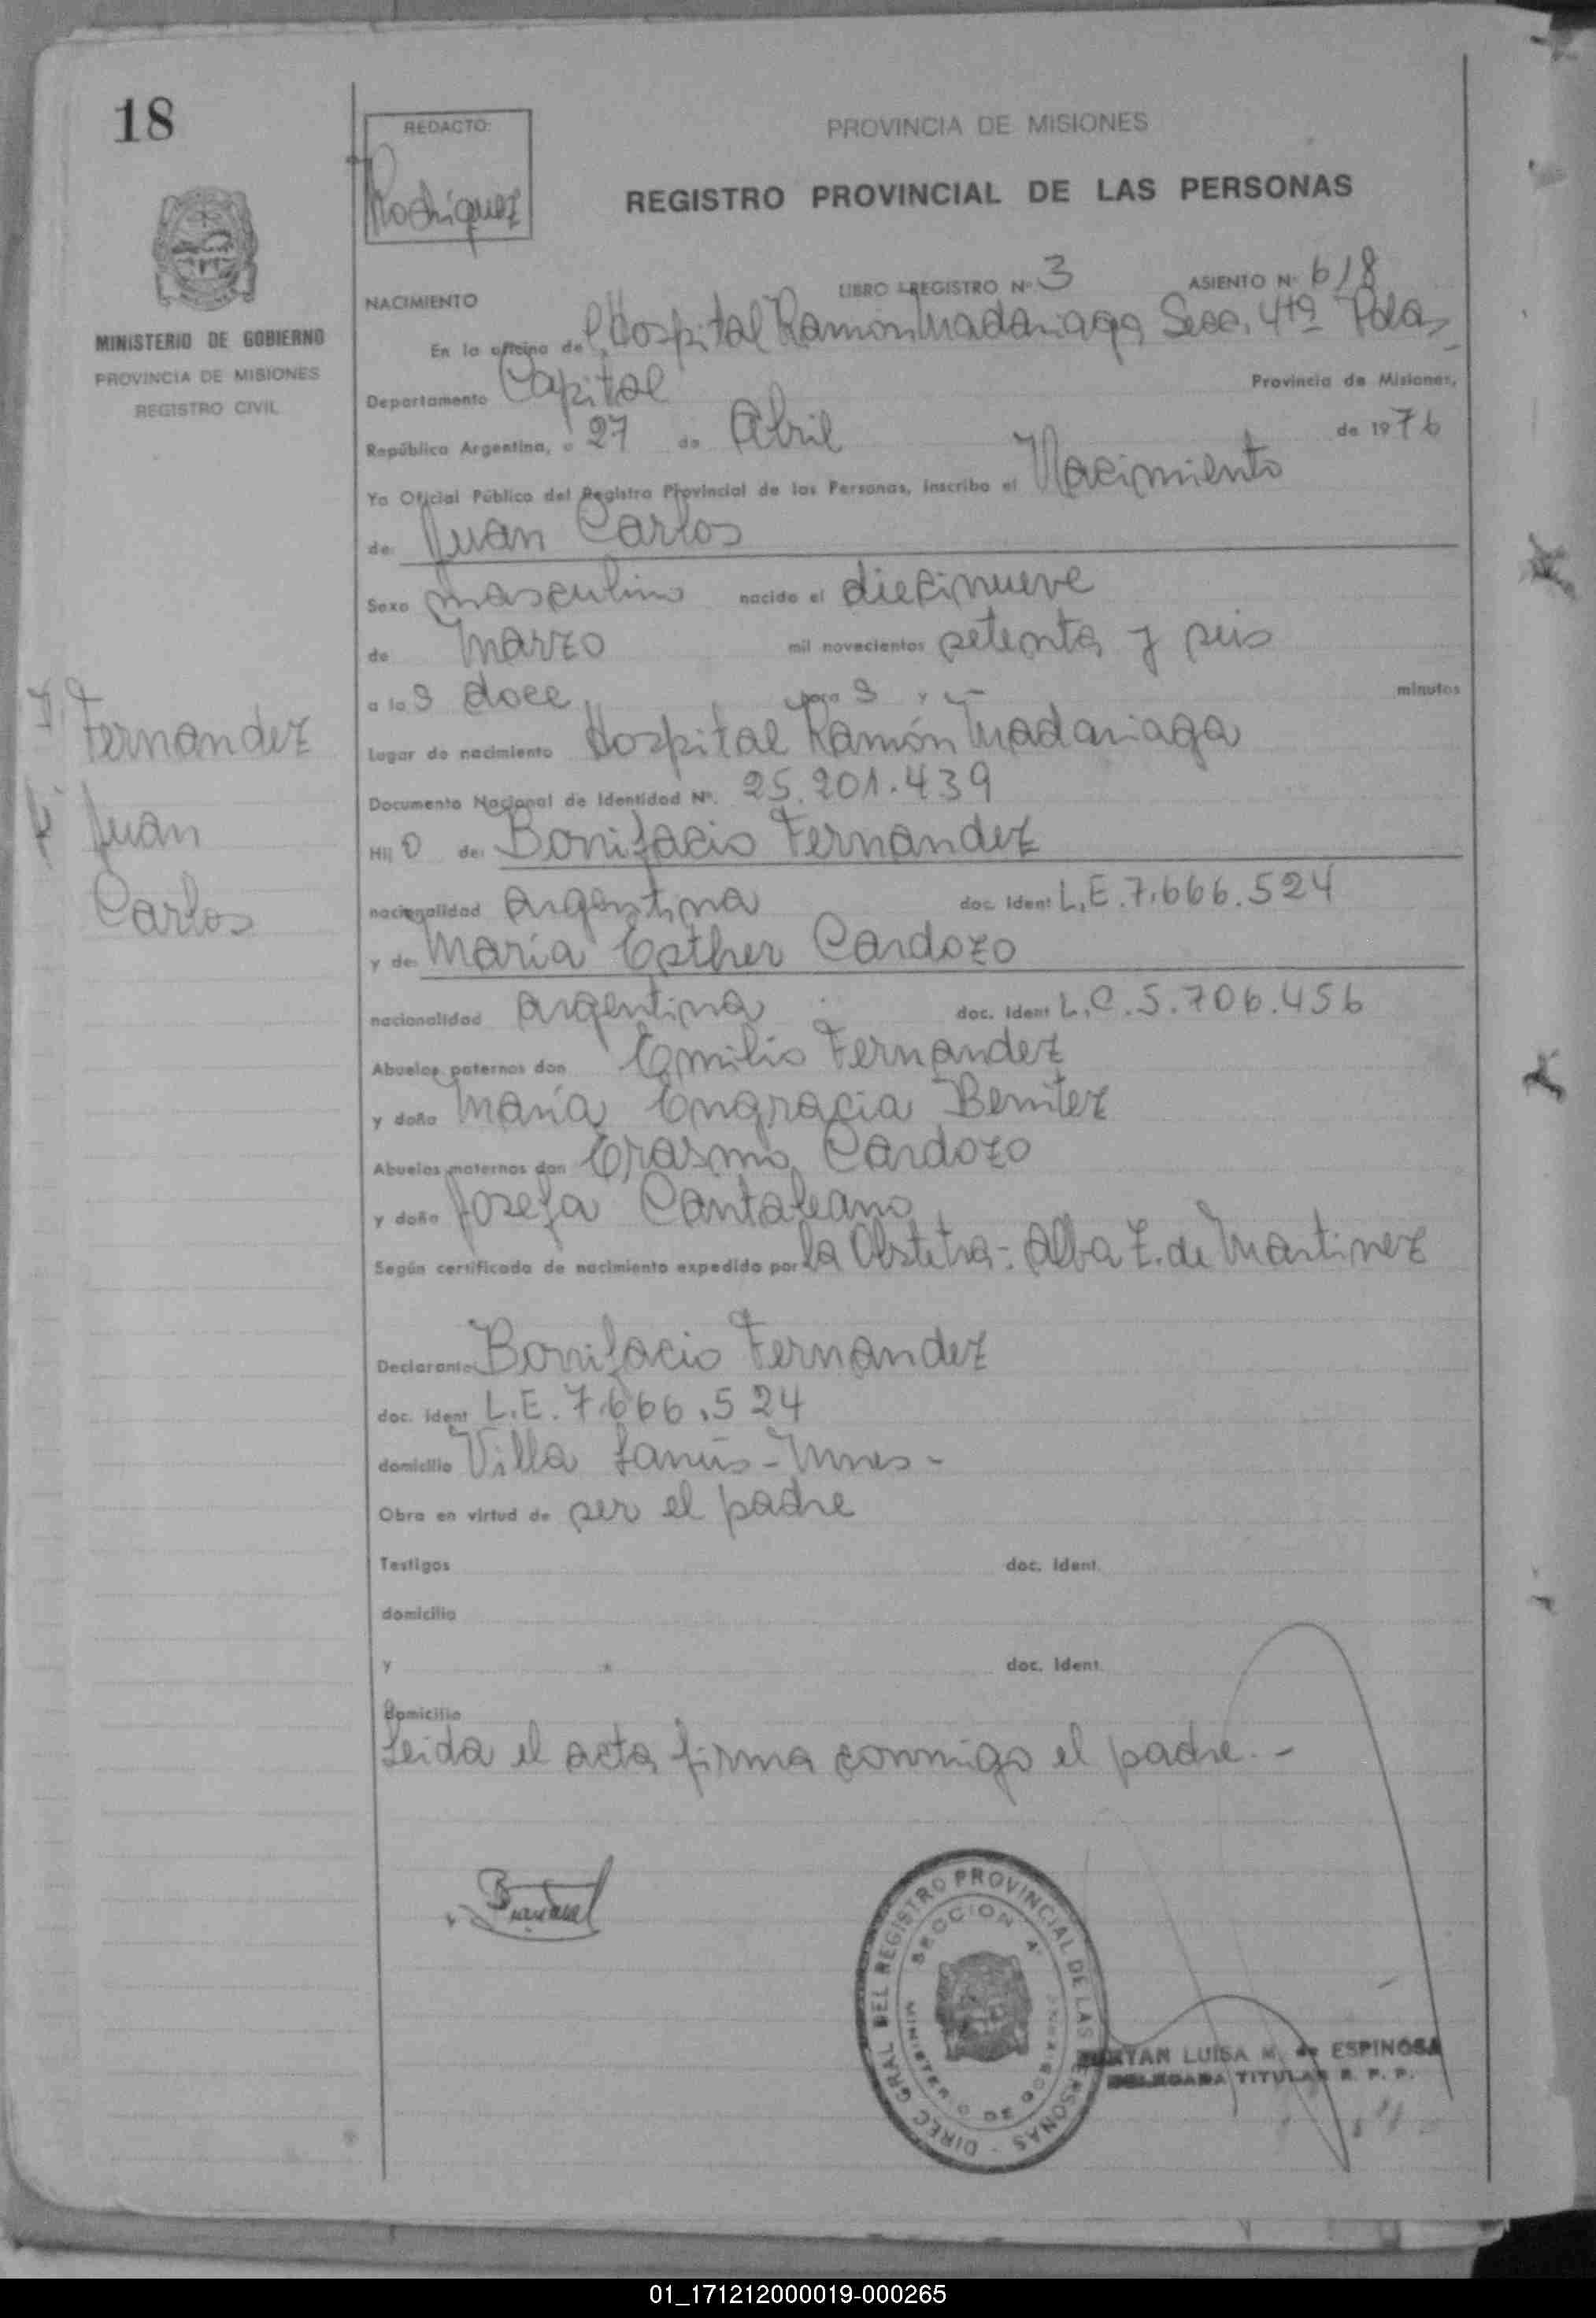 18
REDACTO:
Rodriguez
PROVINCIA DE MISIONES
REGISTRO PROVINCIAL DE LAS PERSONAS
MINISTERIO DE GOBIERNO
PROVINCIA DE MISIONES
REGISTRO CIVIL
NACIMIENTO LIBRO REGISTRO Nº 3 ASIENTO Nº 618
En la oficina del Hospital Ramón Madariaga Secc. 4ta Pdas
Departamento Capital Provincia de Misiones,
República Argentina, a 27 de Abril de 1976
Yo Oficial Público del Registro Provincial de las Personas, inscribo el Nacimiento
de: Juan Carlos
Sexo masculino nacido el diecinueve
de Marzo mil novecientos setenta y seis
a las doce horas y — minutos
Lugar de nacimiento Hospital Ramón Madariaga
Documento Nacional de Identidad Nº. 25.201.439
Hijo de: Bonifacio Fernandez
nacionalidad argentina doc. Ident L.E. 7.666.524
y de: María Esther Cardozo
nacionalidad argentina doc. Ident L.C. 5.706.456
Abuelos paternos don Emilio Fernandez
y doña María Engracia Benitez
Abuelos maternos don Erasmo Cardozo
y doña Josefa Cantaleano
Según certificado de nacimiento expedido por la Obstetra: Alba Z. de Martinez
Declarante Bonifacio Fernandez
doc. ident L.E. 7.666.524
domicilio Villa Lanús - Mnes -
Obra en virtud de ser el padre
Testigos doc. Ident.
domicilio
y doc. Ident.
Domicilio
Leida el acta firma conmigo el padre. -
Fernandez
Juan
Carlos
DIREC GRAL DEL REGISTRO PROVINCIAL DE LAS PERSONAS
SECCION 4ª
LUISA M. de ESPINOSA
DELEGADA TITULAR R. P. P.
01_171212000019-000265